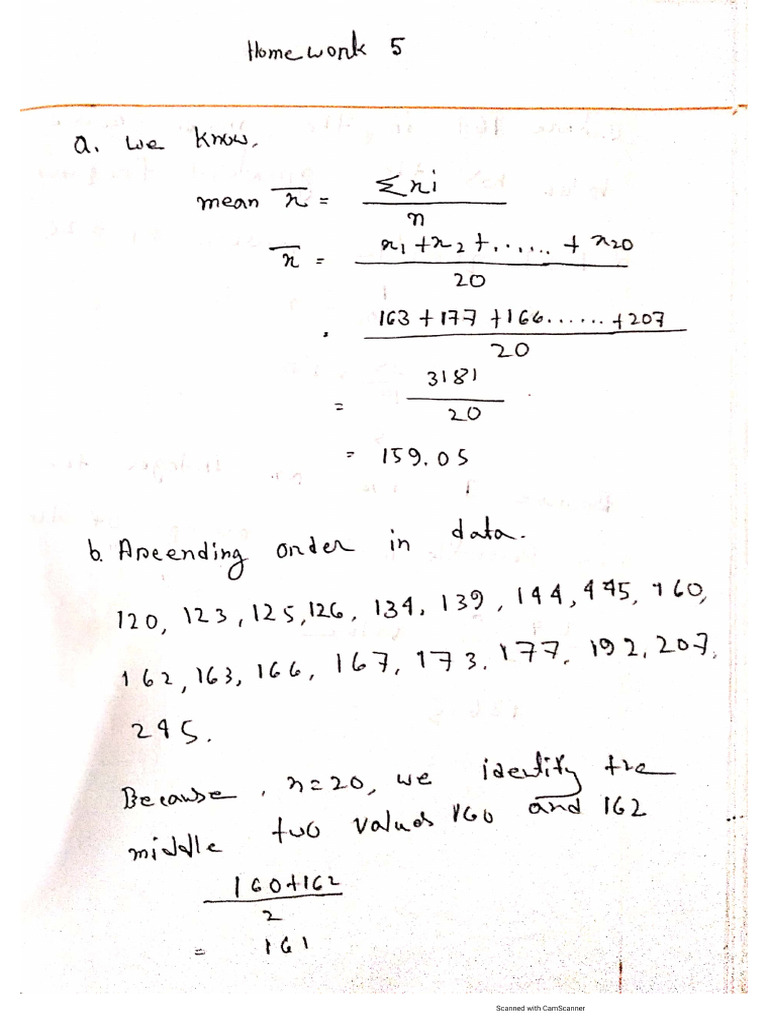 Homework 5
a. we know,
mean x̄ = Σxi / n
x̄ = x1 + x2 + ...... + x20 / 20
163 + 177 + 166 ...... + 207 / 20
= 3181 / 20
= 159.05
b. Arcending order in data.
120, 123, 125, 126, 134, 139, 144, 445, 160,
162, 163, 166, 167, 173, 177, 192, 207,
245.
Because, n=20, we identify the
middle two values 160 and 162
160+162 / 2
= 161
Scanned with CamScanner